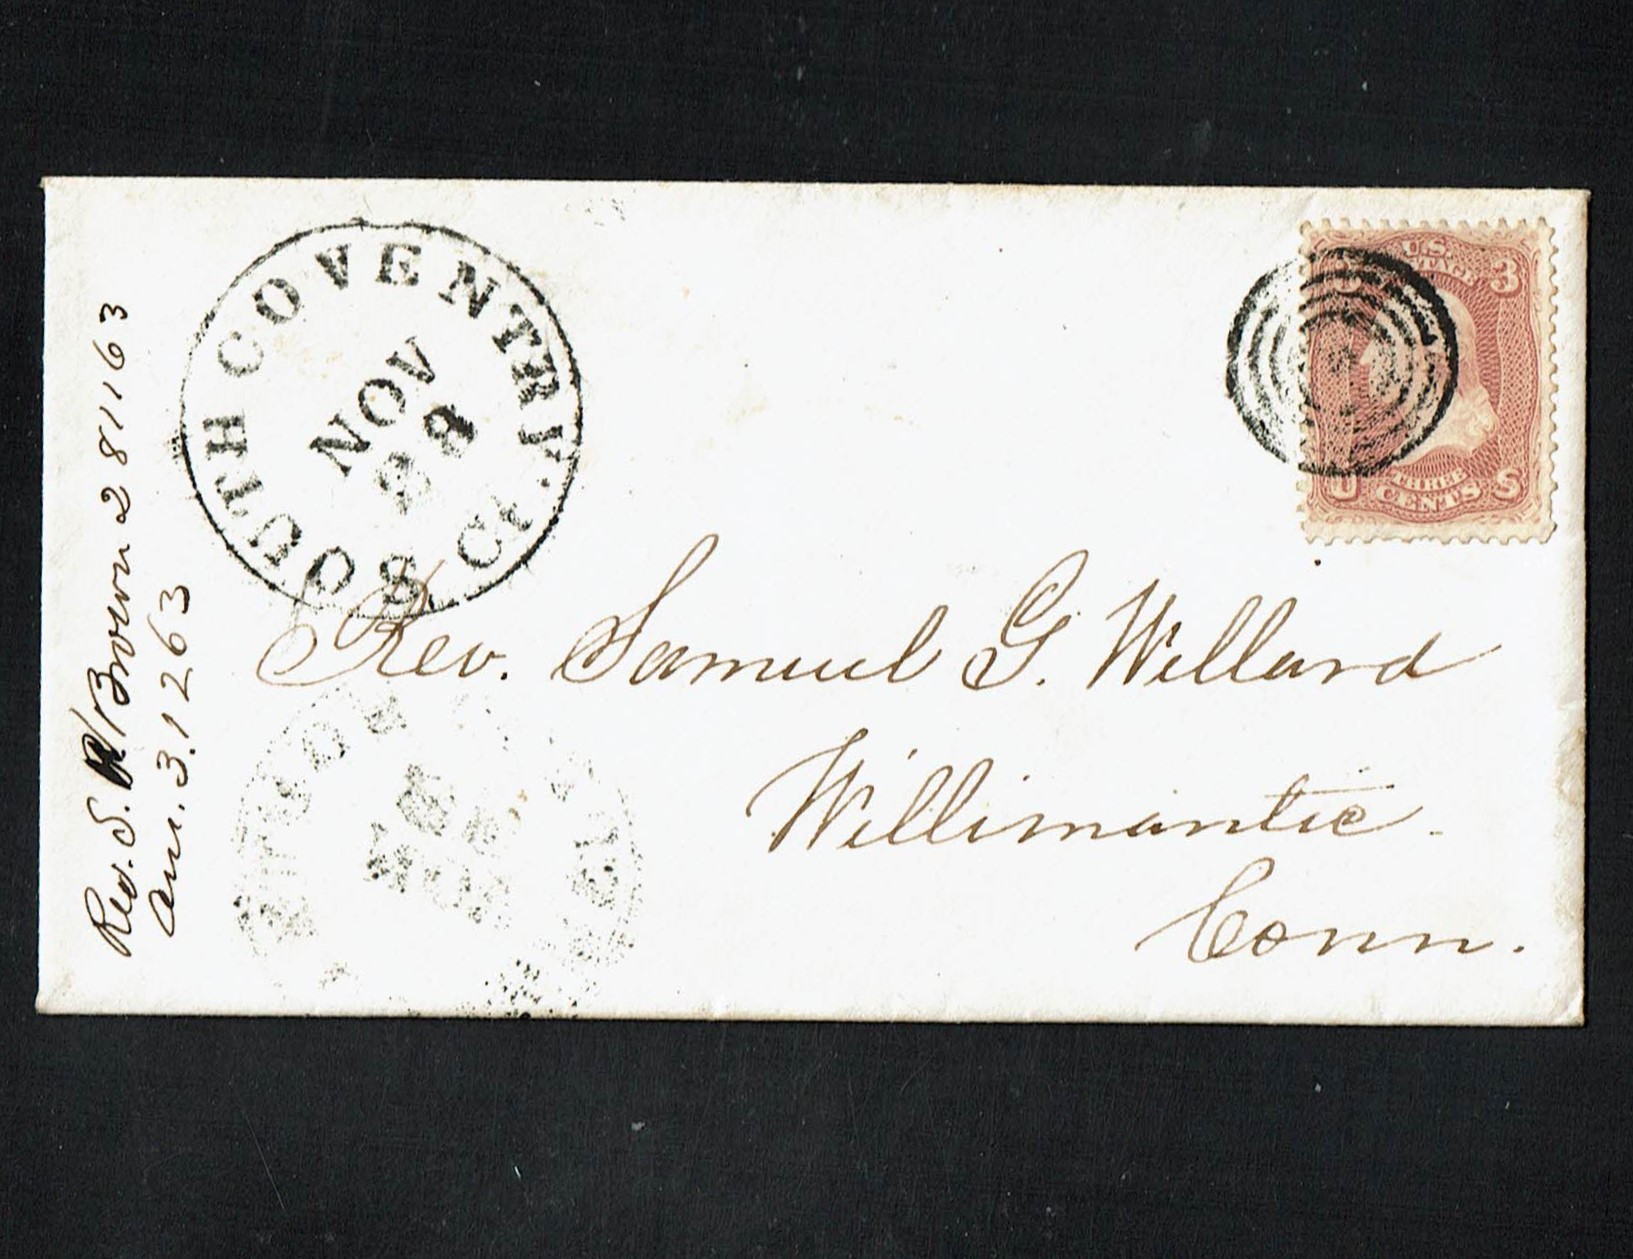 SOUTH COVENTRY. Ct.
NOV
28
U.S.
POSTAGE
3
THREE
CENTS
U S
Rev. Samuel G. Willard
Willimantic
Conn.
Rev. S. Brown 28 11 63
Anr. 3.12 63